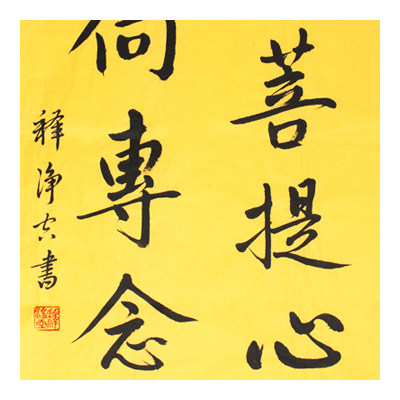 菩提心
向專念
釋淨空書